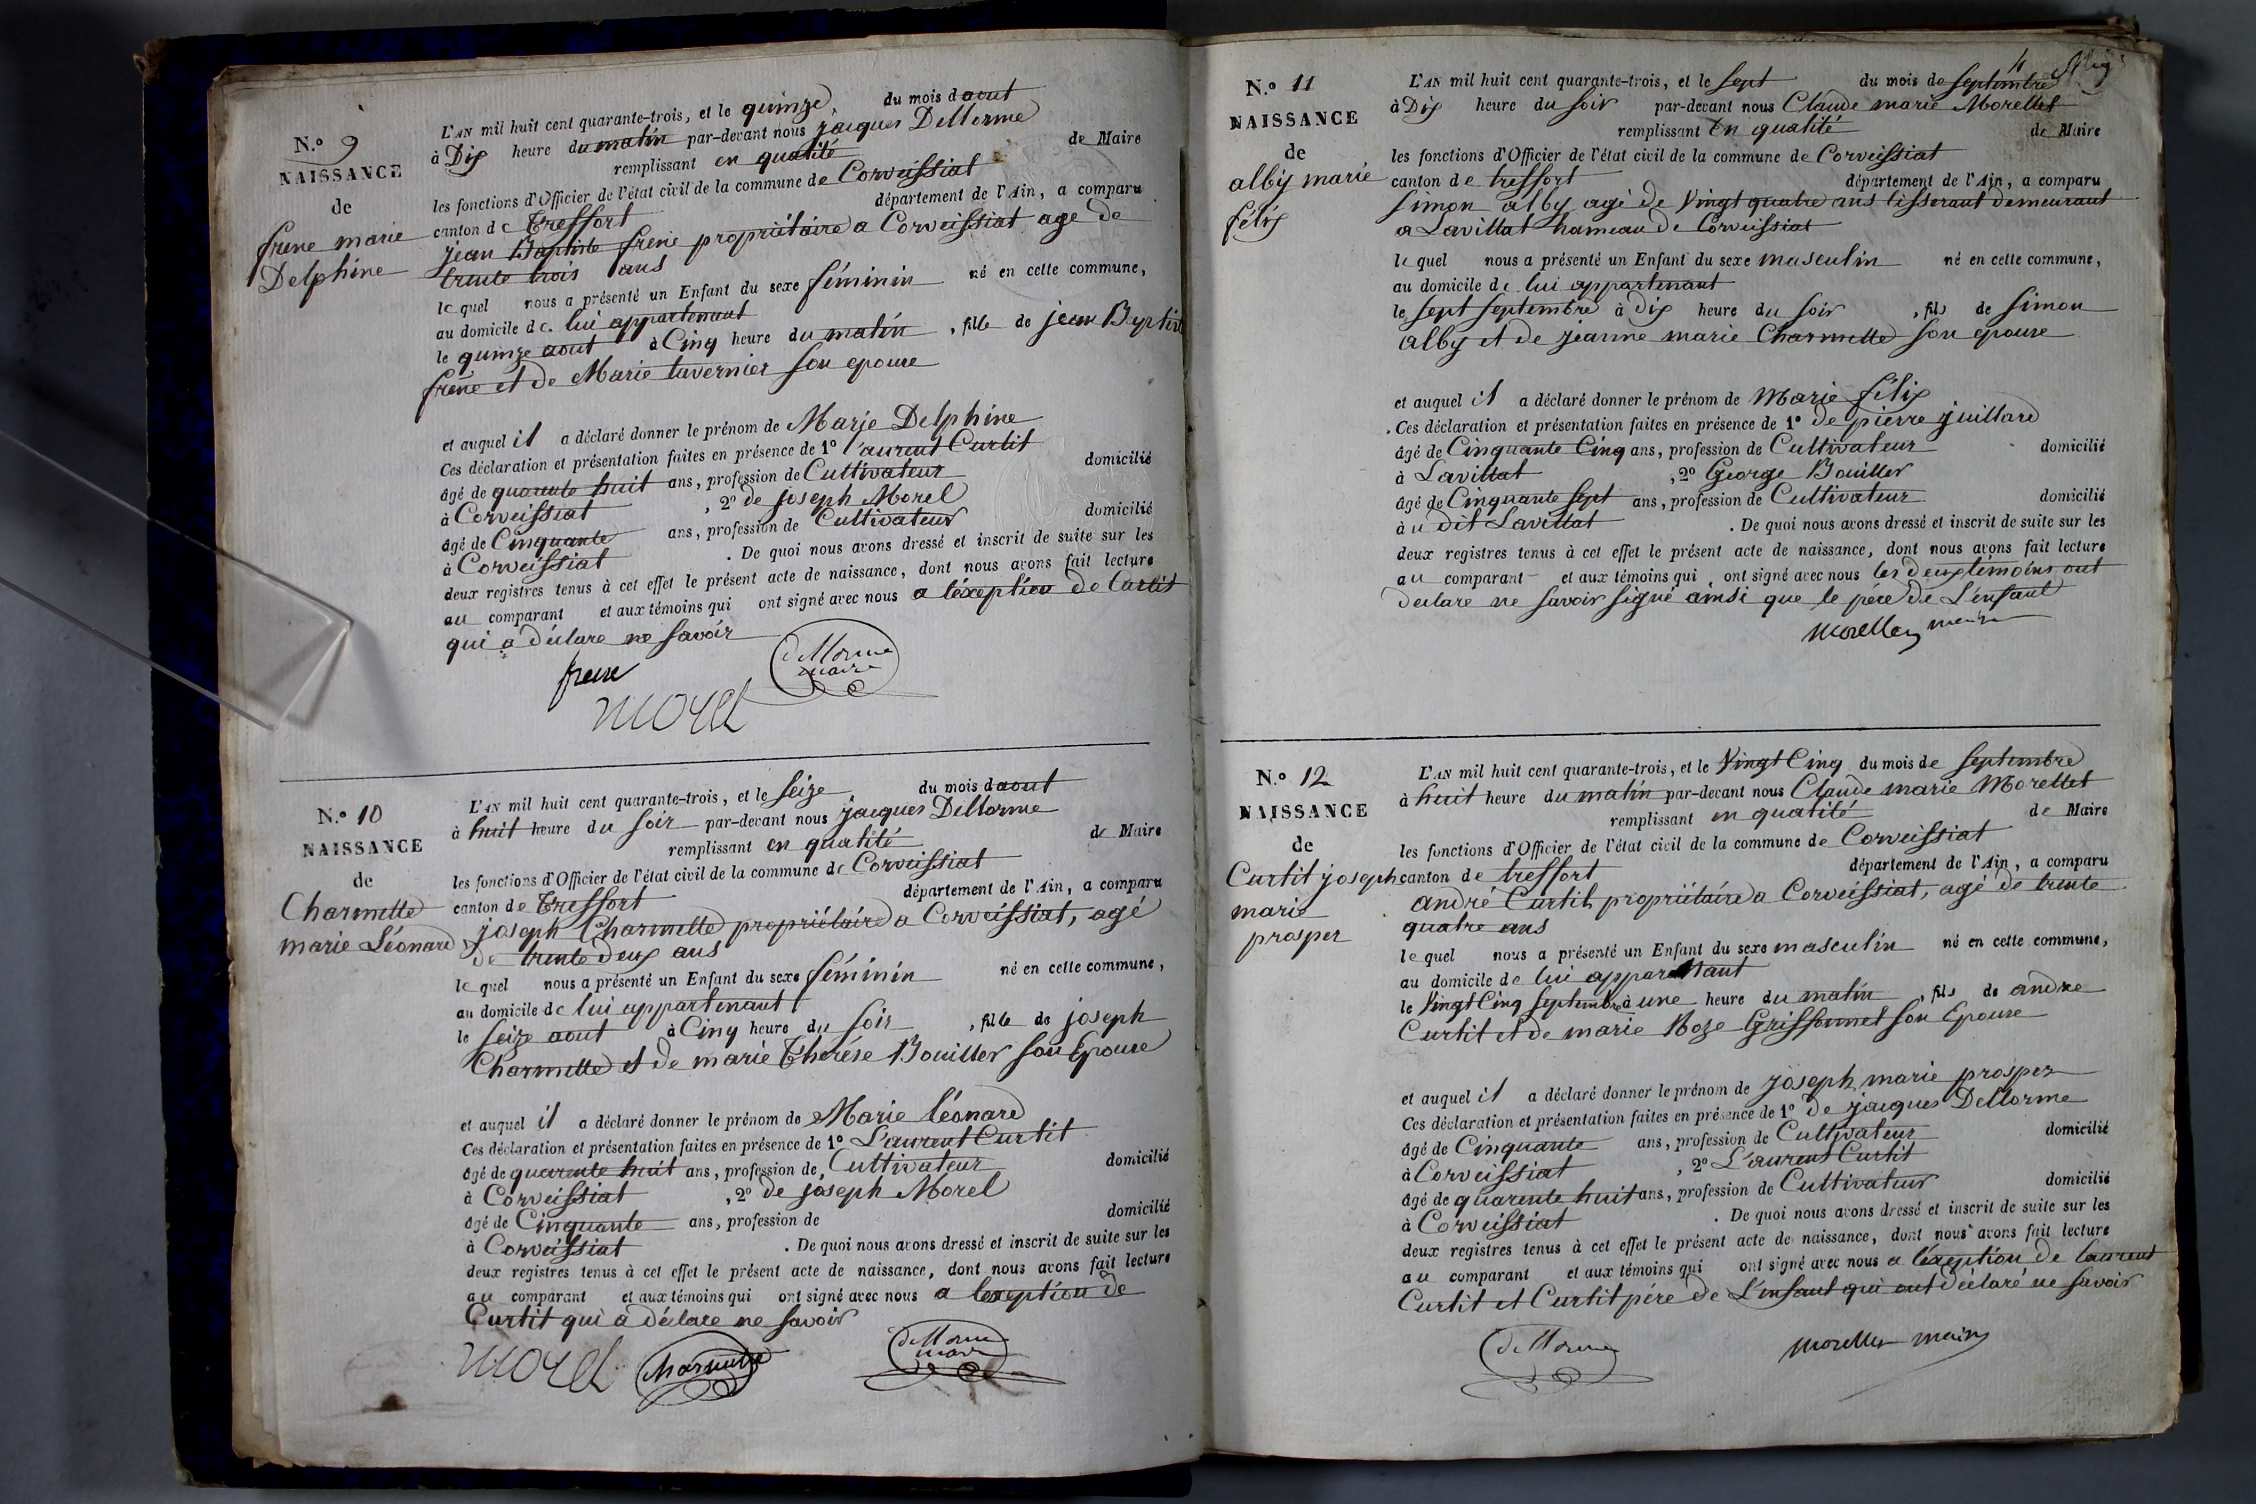 N.º 9
NAISSANCE
de
frene marie
Delphine
L'AN mil huit cent quarante-trois, et le quinze, du mois d aout
à Dix heure du matin par-devant nous jacques Dellorme
remplissant en qualité de Maire
les fonctions d'Officier de l'état civil de la commune de Corveissiat
canton de Treffort département de l'Ain, a comparu
jean Baptiste frene propriétaire a Corveissiat agé de
trente trois ans
le quel nous a présenté un Enfant du sexe féminin né en cette commune,
au domicile de lui appartenant
le quinze aout à Cinq heure du matin, fille de jean Baptiste
frene et de Marie tavernier son epouse
et auquel il a déclaré donner le prénom de Marie Delphine
Ces déclaration et présentation faites en présence de 1º Laurent Curtit
âgé de quarente huit ans, profession de Cultivateur domicilié
à Corveissiat, 2º de joseph Morel
âgé de Cinquante ans, profession de Cultivateur domicilié
à Corveissiat. De quoi nous avons dressé et inscrit de suite sur les
deux registres tenus à cet effet le présent acte de naissance, dont nous avons fait lecture
au comparant et aux témoins qui ont signé avec nous a léxeption de Curtit
qui a déclare ne savoir
frene
morel
dellorme
maire
N.º 10
NAISSANCE
de
Charmette
marie Léonard
L'AN mil huit cent quarante-trois, et le seize du mois d aout
à huit heure du soir par-devant nous jacques Dellorme
remplissant en qualité de Maire
les fonctions d'Officier de l'état civil de la commune de Corveissiat
canton de Treffort département de l'Ain, a comparu
joseph Charmette propriétaire a Corveissiat, agé
de trente deux ans
le quel nous a présenté un Enfant du sexe féminin né en cette commune,
au domicile de lui appartenant
le seize aout à Cinq heure du soir, fille de joseph
Charmette et de marie Thérése Bouiller son Epouse
et auquel il a déclaré donner le prénom de Marie léonard
Ces déclaration et présentation faites en présence de 1º Laurent Curtit
âgé de quarente huit ans, profession de Cultivateur domicilié
à Corveissiat, 2º de joseph Morel
âgé de Cinquante ans, profession de domicilié
à Corveissiat. De quoi nous avons dressé et inscrit de suite sur les
deux registres tenus à cet effet le présent acte de naissance, dont nous avons fait lecture
au comparant et aux témoins qui ont signé avec nous a lexeption de
Curtit qui a déclare ne savoir
morel Charmette dellorme
maire
4
N.º 11
NAISSANCE
de
alby marie
félix
L'AN mil huit cent quarante-trois, et le sept du mois de septembre
à Dix heure du soir par-devant nous Claude marie Morellet
remplissant En qualité de Maire
les fonctions d'Officier de l'état civil de la commune de Corveissiat
canton de treffort département de l'Ain, a comparu
simon alby agé de Vingt quatre ans tisserant demeurant
a Lavillat hameau de Corveissiat
le quel nous a présenté un Enfant du sexe masculin né en cette commune,
au domicile de lui appartenant
le sept septembre à dix heure du soir, fils de simon
alby et de jeanne marie Charmette son epouse
et auquel il a déclaré donner le prénom de Marie félix
. Ces déclaration et présentation faites en présence de 1º de pierre juillard
âgé de Cinquante Cinq ans, profession de Cultivateur domicilié
à Lavillat, 2º George Bouiller
âgé de Cinquante sept ans, profession de Cultivateur domicilié
à u dit Lavillat. De quoi nous avons dressé et inscrit de suite sur les
deux registres tenus à cet effet le présent acte de naissance, dont nous avons fait lecture
au comparant et aux témoins qui ont signé avec nous les deux témoins ont
declare ne savoir signé ainsi que le pére de L'enfant
morellet maire
N.º 12
NAISSANCE
de
Curtit joseph
marie
prosper
L'AN mil huit cent quarante-trois, et le Vingt Cinq du mois de septembre
à huit heure du matin par-devant nous Claude marie Morellet
remplissant en qualité de Maire
les fonctions d'Officier de l'état civil de la commune de Corveissiat
canton de treffort département de l'Ain, a comparu
andré Curtit, propriétaire a Corveissiat, agé de trente
quatre ans
le quel nous a présenté un Enfant du sexe masculin né en cette commune,
au domicile de lui appartenant
le Vingt Cinq septembre à une heure du matin, fils de andre
Curtit et de marie Roze Griffonnet son Epouse
et auquel il a déclaré donner le prénom de joseph marie prosper
Ces déclaration et présentation faites en présence de 1º de jacques Dellorme
âgé de Cinquante ans, profession de Cultivateur domicilié
à Corveissiat, 2º Laurent Curtit
âgé de quarente huit ans, profession de Cultivateur domicilié
à Corveissiat. De quoi nous avons dressé et inscrit de suite sur les
deux registres tenus à cet effet le présent acte de naissance, dont nous avons fait lecture
au comparant et aux témoins qui ont signé avec nous a léxeption de laurent
Curtit et Curtit pére de L'enfant qui ont déclaré ne savoir
dellorme morellet maire